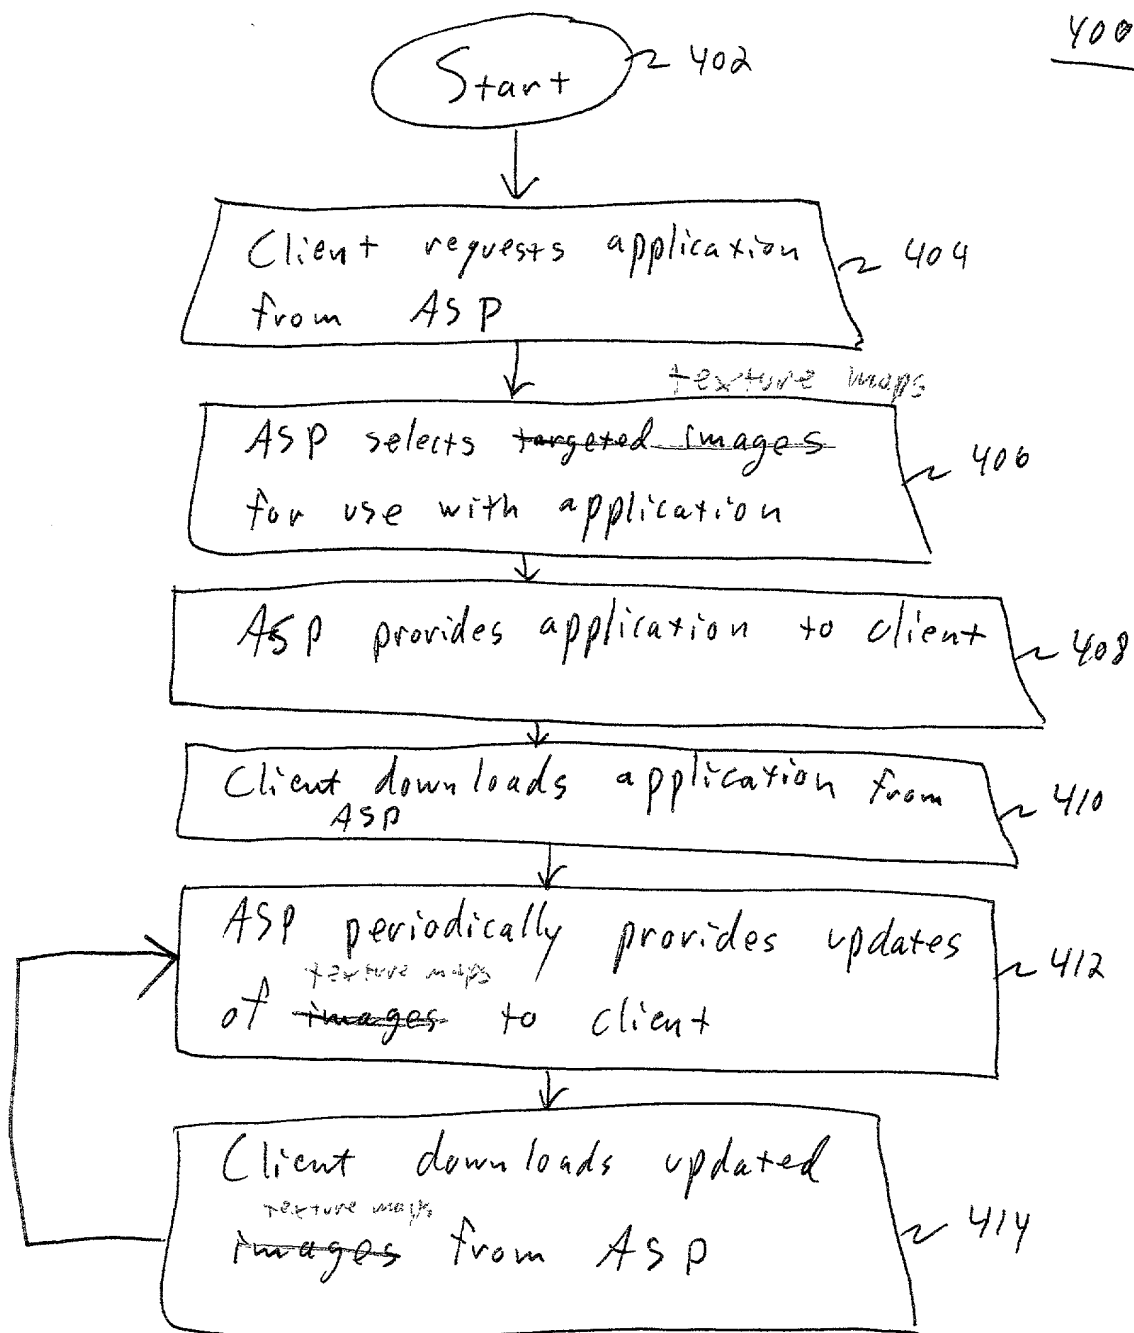 400
Start 402
Client requests application 404
from ASP
texture maps
ASP selects targeted images 406
for use with application
ASP provides application to client 408
Client downloads application from 410
ASP
ASP periodically provides updates
texture maps 412
of images to client
Client downloads updated
texture maps
images from ASP 414